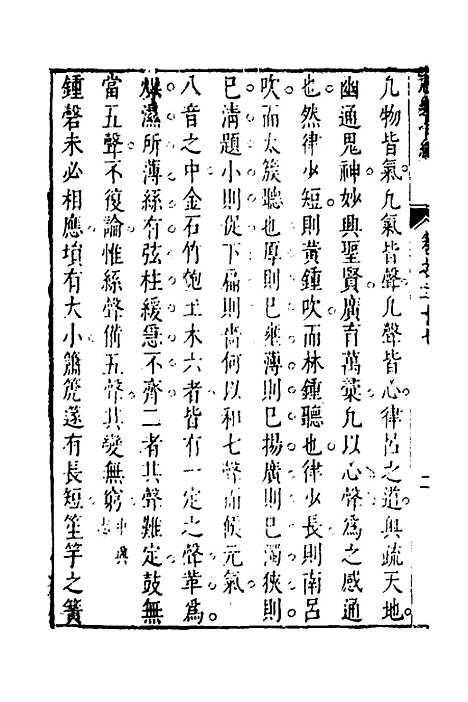 凡物皆氣凡氣皆聲凡聲皆心律呂之道與疏天地
幽通鬼神妙與聖賢廣育萬彙凡以心聲爲之感通
也然律少短則黃鍾吹而林鍾聽也律少長則南呂
吹而太簇聽也厚則巳乘薄則巳揚廣則巳濁狹則
巳清題小則從下扁則啻何以和七聲而候元氣
八音之中金石竹匏土木六者皆有一定之聲革爲
燥濕所薄絲有弦柱緩急不齊二者其聲難定鼓無
當五聲不復論惟絲聲備五聲其變無窮中興志
鍾磬未必相應塤有大小簫篪篴有長短笙竽之簧
卷之二十七
二